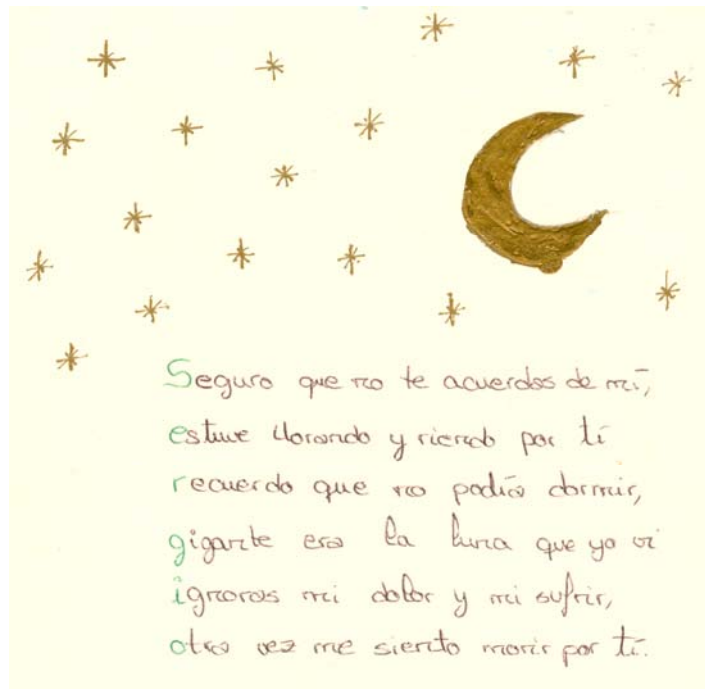 Seguro que no te acuerdas de mí,
estuve llorando y riendo por tí
recuerdo que no podía dormir,
gigante era la luna que yo vi
ignoras mi dolor y mi sufrir,
otra vez me siento morir por tí.